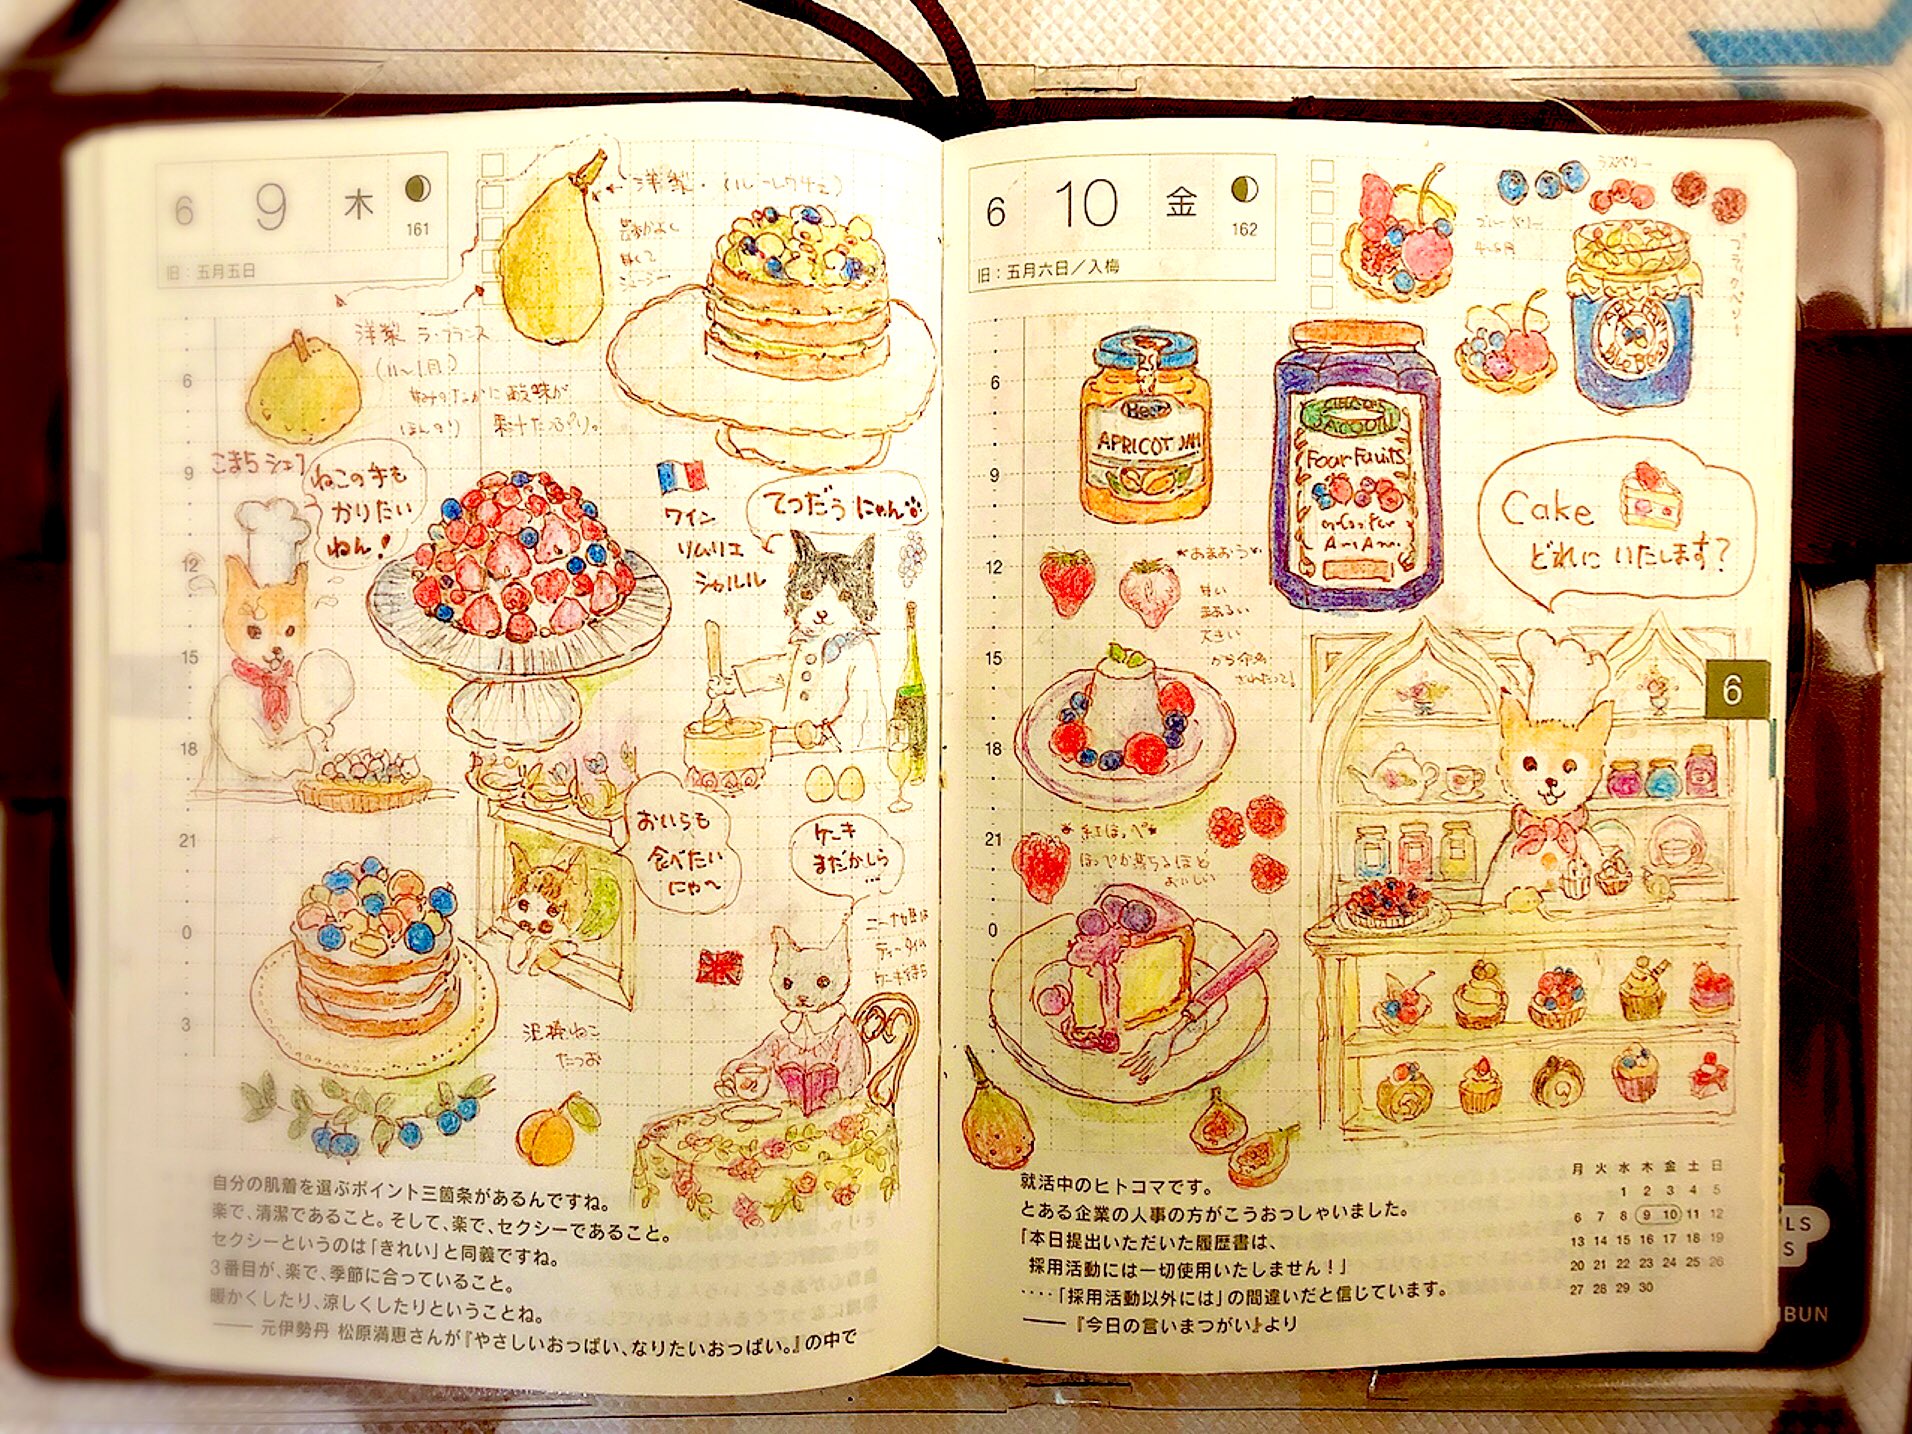 6 9 木
161
旧：五月五日
洋梨
甘くて
ジューシー
洋梨 ラ・フランス
(11〜1月)
酸味が
ほんのり 果汁たっぷり。
こまちシェフ
ねこの手も
かりたい
ねん!
ワイン
ソムリエ
シャルル
てつだうにゃん
おいらも
食べたい
にゃ〜
ケーキ
まだかしら
...
ティータイム
ケーキまち
泥棒ねこ
たつお
6
9
12
15
18
21
0
3
自分の肌着を選ぶポイント三箇条があるんですね。
楽で、清潔であること。そして、楽で、セクシーであること。
セクシーというのは「きれい」と同義ですね。
3番目が、楽で、季節に合っていること。
暖かくしたり、涼しくしたりということね。
―― 元伊勢丹 松原満恵さんが『やさしいおっぱい、なりたいおっぱい。』の中で
6 10 金
162
旧：五月六日／入梅
ラズベリー
ブルーベリー
APRICOT JAM
Four Fruits
Cake
どれにいたします?
あまおう
甘い
まるい
大きい
うまい
から命名
されたって!
紅ほっぺ
ほっぺが落ちるほど
おいしい
6
9
12
15
18
21
0
3
6
就活中のヒトコマです。
とある企業の人事の方がこうおっしゃいました。
「本日提出いただいた履歴書は、
採用活動には一切使用いたしません！」
‥‥「採用活動以外には」の間違いだと信じています。
―― 『今日の言いまつがい』より
月 火 水 木 金 土 日
1 2 3 4 5
6 7 8 9 10 11 12
13 14 15 16 17 18 19
20 21 22 23 24 25 26
27 28 29 30
LS
S
BUN